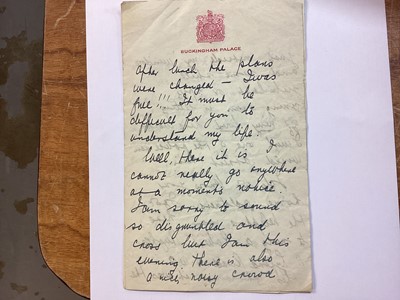 BUCKINGHAM PALACE
After lunch the plans
were changed – I was
free!!! It must be
difficult for you to
understand my life.
Well, there it is I
cannot really go anywhere
at a moments notice.
I am sorry to sound
so disgruntled and
cross but I am this
evening there is also
a nice, noisy crowd